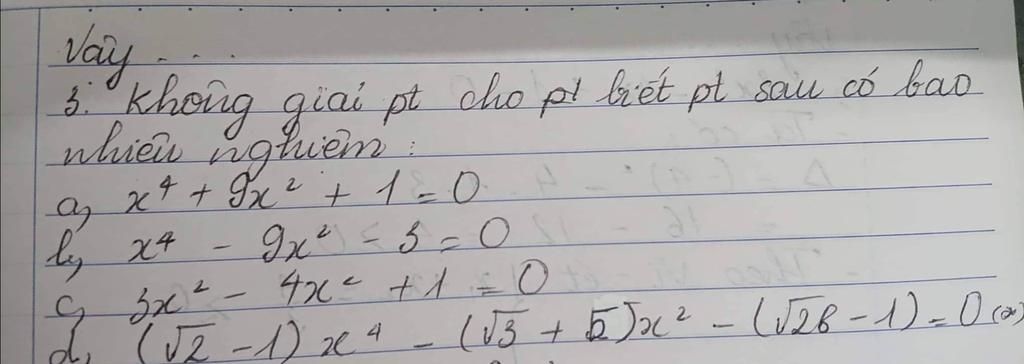 Vậy ....
3. Không giải pt cho pt biết pt sau có bao
nhiêu nghiệm :
a, x⁴ + 9x² + 1 = 0
b, x⁴ - 9x² - 3 = 0
c, 3x² - 4x² + 1 = 0
d, (√2 - 1) x⁴ - (√3 + √2)x² - (√26 - 1) = 0